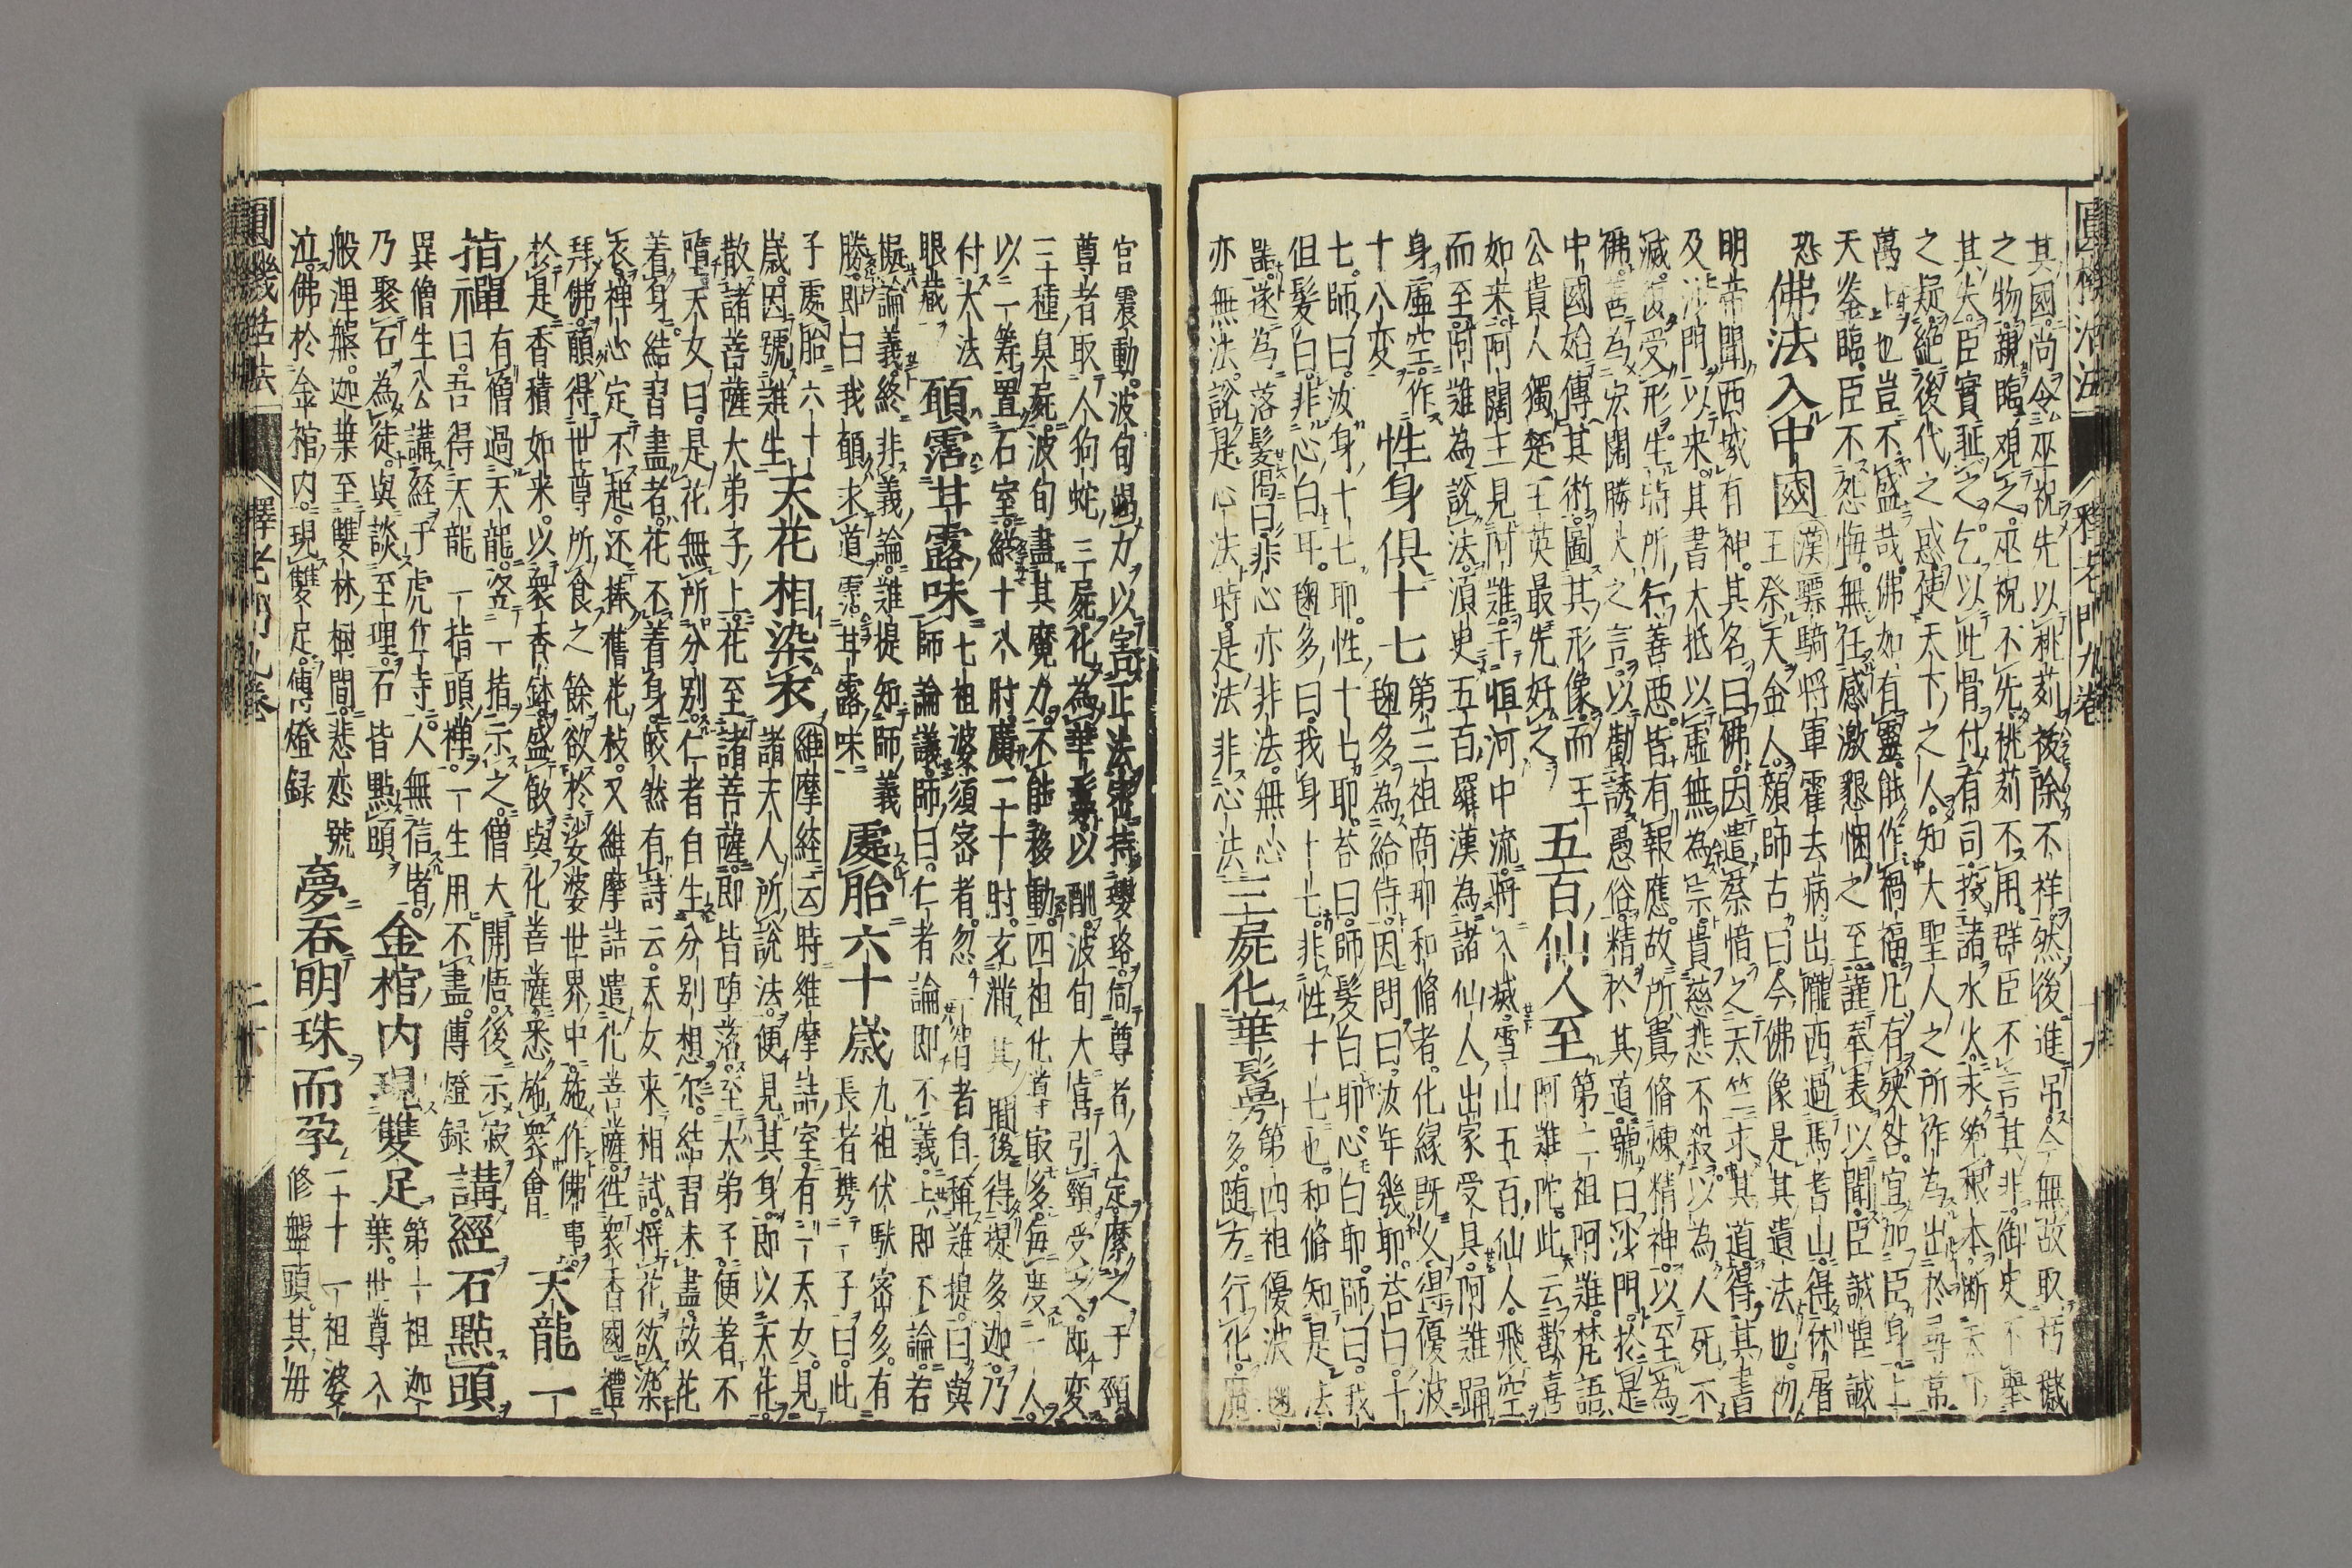 圓機活法
釋老門九卷
十九
其國尚令巫祝先以桃茢祓除不祥然後進吊今無故取朽穢
之物親臨觀之巫祝不先桃茢不用群臣不言其非御史不舉
其失臣實耻之乞以此骨付有司投諸水火永絶根本断天下
之疑絶後代之惑使天下之人知大聖人之所作為出於尋常
萬上也豈不盛哉佛如有靈能作禍福凡有殃咎宜加臣身上
天鉴臨臣不怨悔無任感激懇悃之至謹奉表以聞臣誠惶誠
恐
佛法入中國
漢驃騎将軍霍去病出隴西過焉耆山得休屠
王祭天金人顔師古曰今佛像是其遺法也
明帝聞西域有神其名曰佛因遣蔡愔之天竺求其道得其書
及沙門以来其書大抵以虚無為宗貴慈悲不殺以為人死不
滅復受形生時所行善悪皆有報應故所貴脩煉精神以至為
佛善為宏闊勝大之言以勸誘愚俗精於其道號曰沙門於是
中國始傳其術圖其形像而王
公貴人獨楚王英最先好之
五百仙人至
第二祖阿難梵語
阿難陀此云歡喜
如来阿闍王見阿難于恒河中流将入滅雪山五百仙人飛空
而至阿難為說法須臾五百羅漢為諸仙人出家受具阿難踊
身虚空作
十八変
性身俱十七
第三祖商那和脩者化縁既久得優波
毱多為給侍因問曰汝年幾耶荅曰十
七師曰汝身十七耶性十七耶荅曰師髪白耶心白耶師曰我
但髪白非心白耳毱多曰我身十七非性十七也和脩知是法
噐遂為落髪偈曰非心亦非法無心
亦無法說是心法時是法非心法
三屍化華鬘
第四祖優波毱
多随方行化魔
宮震動波旬過力以害正法宋持瓔珞伺尊者入定縻之于頸
尊者取人狗蛇三屍化為華鬘以酬波旬大喜引頸受之即変
三種臭屍波旬盡其魔力不能移動四祖化導最多毎度一人
以一筹置石室縱十八肘廣二十肘充滿其間後得提多迦乃
付大法
眼藏
頭霑甘露味
七祖婆須密者忽一智者自稱難提曰與
師論議師曰仁者論即不義上即不論若
擬論義終非義論難提知師義
勝即曰我願求道霑甘露味
處胎六十歲
九祖伏馱密多有
長者携一子曰此
子處胎六十
歲因號難生
天花相染衣
維摩經云時維摩詰室有一天女見
諸大人所說法便見其身即以天花
散諸菩薩大弟子上花至諸菩薩即皆堕落至大弟子便著不
墮天女曰是花無所分别仁者自生分别想尔結習未盡故花
着身結習盡者花不着身皎然有詩云天女来相試将花欲染
衣禅心定不起还捧舊花枝又維摩詰遣化菩薩往衆香國禮
拜佛願得世尊所食之餘欲於娑婆世界中施作佛事
於是香積如来以衆香鉢盛飯與化菩薩悉施衆會
天龍一
指禪
有僧過天龍竖一指示之僧大開悟後示寂
曰吾得天龍一指頭禅一生用不盡傳燈録
講經石點頭
異僧生公講經于虎丘寺人無信者
乃聚石為徒與談至理石皆點頭
金棺内現雙足
第一祖迦
葉世尊入
般涅槃迦葉至雙林樹間悲恋號
泣佛於金棺内現雙足傳燈録
夢吞明珠而孕
二十一祖婆
修盤頭其毋
圓機活法
釋老門九卷